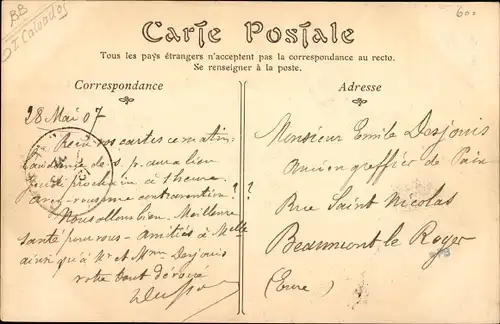 BB
I Calvados
600
Carte Postale
Tous les pays étrangers n'acceptent pas la correspondance au recto.
Se renseigner à la poste.
Correspondance
28 Mai 07
Reçu vos cartes ce matin -
L'audience de s. p. aura lieu
Jeudi prochain à 1 heure.
avez-vous une contravention ? ?
Nous allons bien. Meilleure
santé pour vous - amitiés à Melle
ainsi qu'à Mr et Mme Desjouis
votre tout dévoué
Adresse
Monsieur Emile Desjouis
Ancien greffier de Paix
Rue Saint Nicolas
Beaumont le Roger
(Eure)